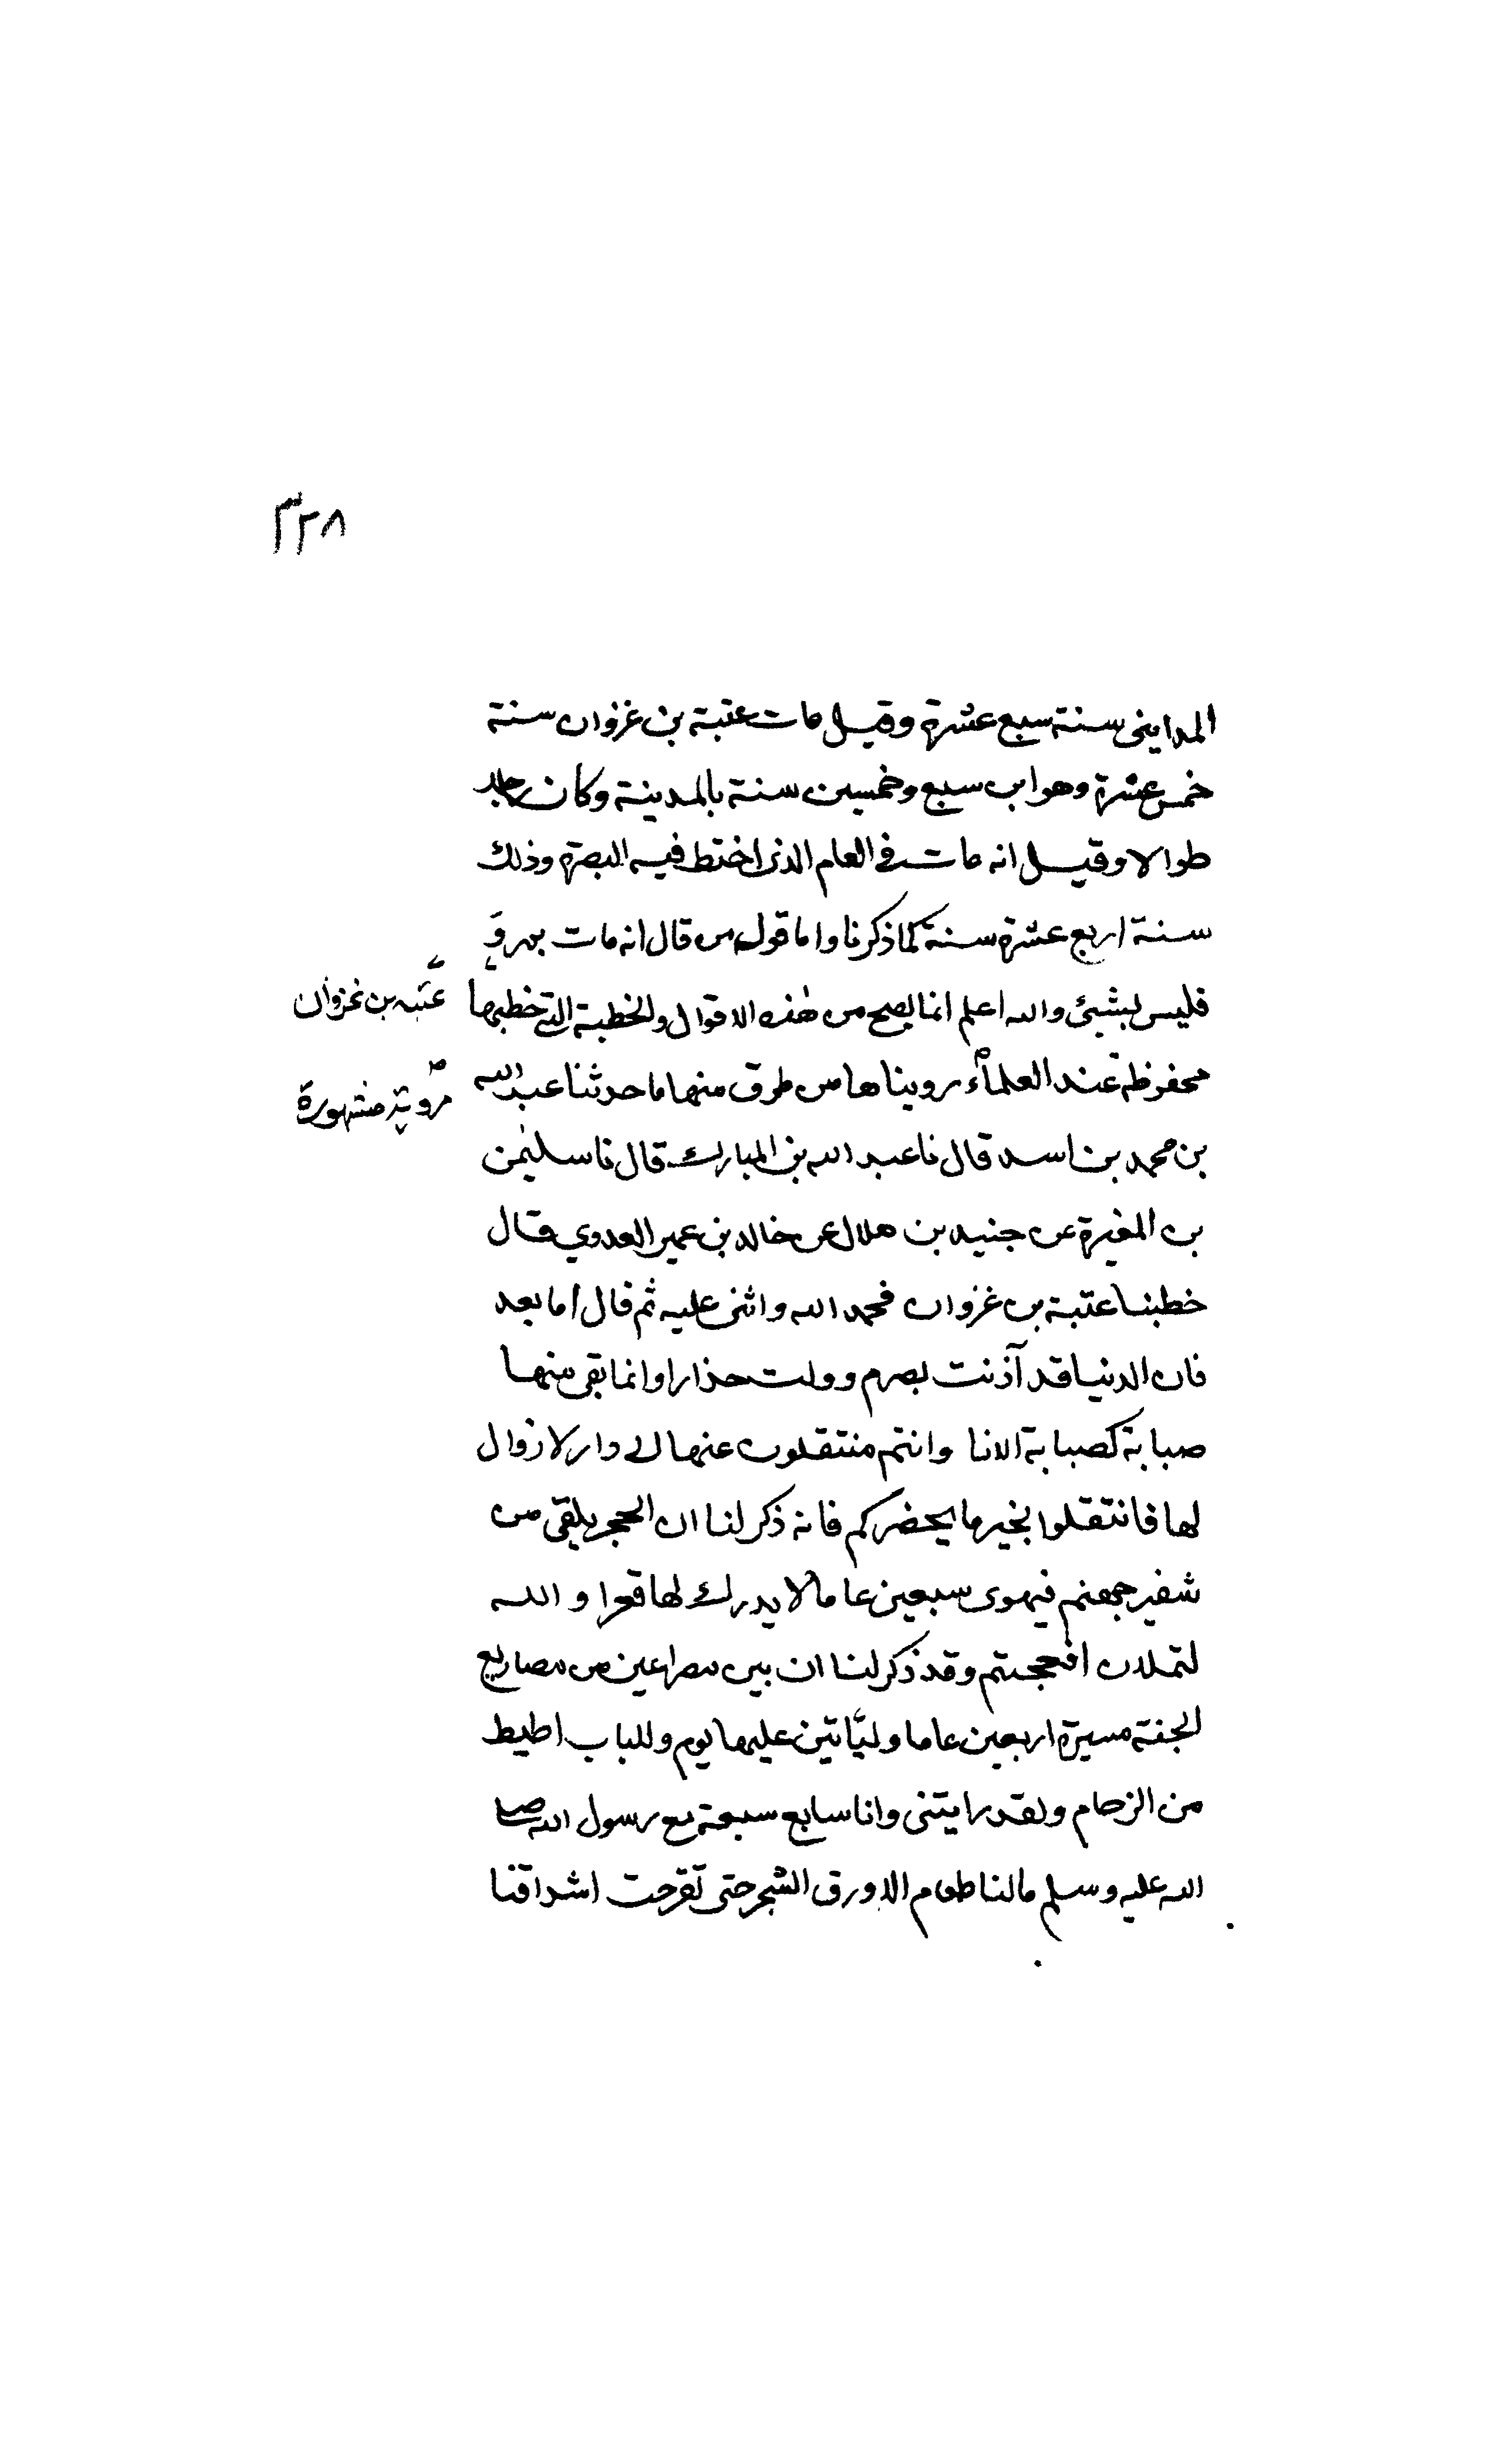 ٣٢٨
المداينى سنة سبع عشرة وقيل مات عتبة بن غزوان سنة
خمس عشرة وهو ابن سبع وخمسين سنة بالمدينة وكان رجلا
طوالا وقيل انه مات فى العام الذى اختط فيه البصرة وذلك
سنة اربع عشرة سنة كما ذكرنا واما قول من قال انه مات بمرو
فليس بشيئ والله اعلم انما يصح من هذه الاقوال والخطبة التى خطبها
عتبه بن غزوان
محفوظة عند العلماء رويناها من طرق منها ما حدثنا عبد الله
مروية مشهورة
بن محمد بن اسد قال نا عبد الله بن المبارك قال نا سليمن
بن المغيرة عن جنيد بن هلال عن خالد بن عمير العدوي قال
خطبنا عتبة بن غزوان فحمد الله واثنى عليه ثم قال اما بعد
فان الدنيا قد آذنت بصرم وولت حذارا وانما بقى منها
صبابة كصبابة الانا وانتم منتقلون عنها الى دار لا زوال
لها فانتقلوا بخير ما يحضركم فانه ذكر لنا ان الحجر يلقى من
شفير جهنم فيهوى سبعين عاما لا يدرك لها قعرا والله
لتملان افحجبتم وقد ذكر لنا ان بين مصراعين من مصاريع
الجنة مسيرة اربعين عاما وليّاتين عليها يوم وللباب اطيط
من الزحام ولقد رايتنى وانا سابع سبعة مع رسول الله صلى
الله عليه وسلم مالنا طعام الا ورق الشجر حتى تقرحت اشداقنا